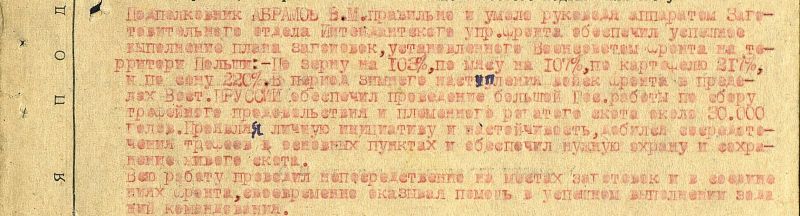 Подполковник АБРАМОВ В.М.правильно и умело руководя аппаратом Заго-
товительного отдела Интендантского упр.фронта обеспечил успешное
выполнение плана заготовок,установленного Военсоветом фронта на те-
рритории Польши:-По зерну на 103%,по мясу на 107%,по картофелю 217%,
и по сену 220%.В период зимнего наступления войск фронта в преде-
лах Вост.ПРУССИИ обеспечил проведение большой Гос.работы по сбору
трофейного продовольствия и племенного рогатого скота около 30.000
голов.Проявляя личную инициативу и настойчивость,добился сосредото-
чения трофеев в основных пунктах и обеспечил нужную охрану и сохра-
нение живого скота.
Всю работу проводил непосредственно на местах заготовок и в соедине
ниях фронта,своевременно оказывая помощь в успешном выполнении зада
ний командования.
П О Д
Я